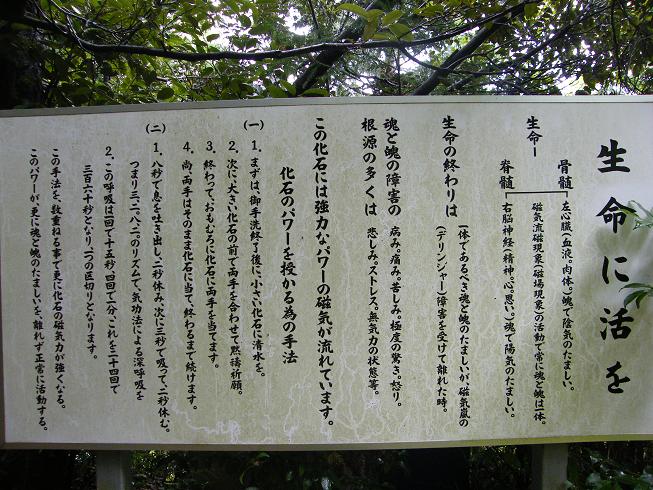 生命に活を
骨髄 ― 左心臓(血液。肉体。)魄で陰気のたましい。
生命 ― 磁気流磁現象(磁場現象)の活動で常に魂と魄は一体。
脊髄 ― 右脳神経(精神。心。思い。)魂で陽気のたましい。
生命の終わりは 一体であるべき魂と魄のたましいが、磁気嵐の
(デリンジャー)障害を受けて離れた時。
魂と魄の障害の 病み。痛み。苦しみ。極度の驚き。怒り。
根源の多くは 悲しみ。ストレス。無気力の状態等。
この化石には強力なパワーの磁気が流れています。
化石のパワーを授かる為の手法
(一) 1.まずは、御手洗終了後に、小さい化石に清水を。
2.次に、大きい化石の前で両手を合わせて黙祷祈願。
3.終わって、おもむろに化石に両手を当てます。
4.尚、両手はそのまま化石に当て、終わるまで続けます。
(二) 1.八秒で息を吐き出し、二秒休み、次に三秒で吸って、二秒休む。
つまり三、二、八、二、のリズムで、気功法による深呼吸を
2.この呼吸は一回で十五秒。四回で一分、これを二十四回で
三百六十秒となり、一つの区切りとなります。
この手法を、数重ねる事で更に化石の磁気力が強くなる。
このパワーが、更に魂と魄のたましいを、離れず正常に活動する。